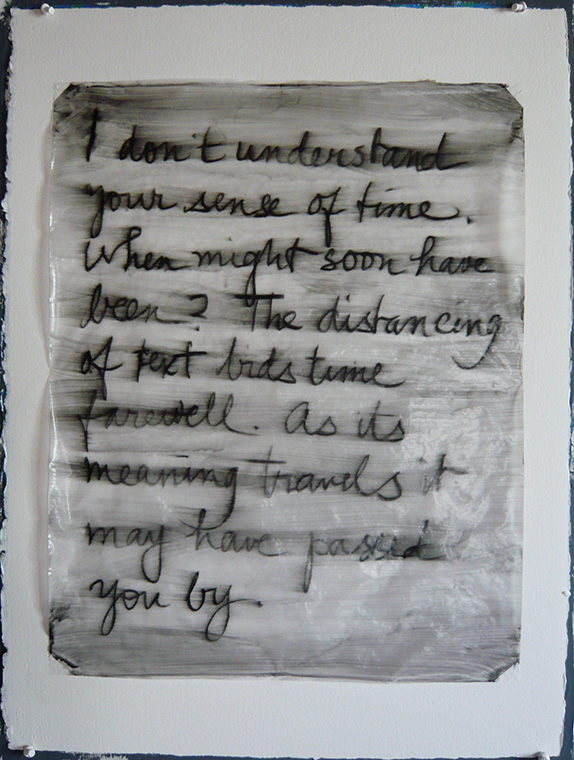 I don't understand
your sense of time.
When might soon have
been? The distancing
of text bids time
farewell. As its
meaning travels it
may have passed
you by.